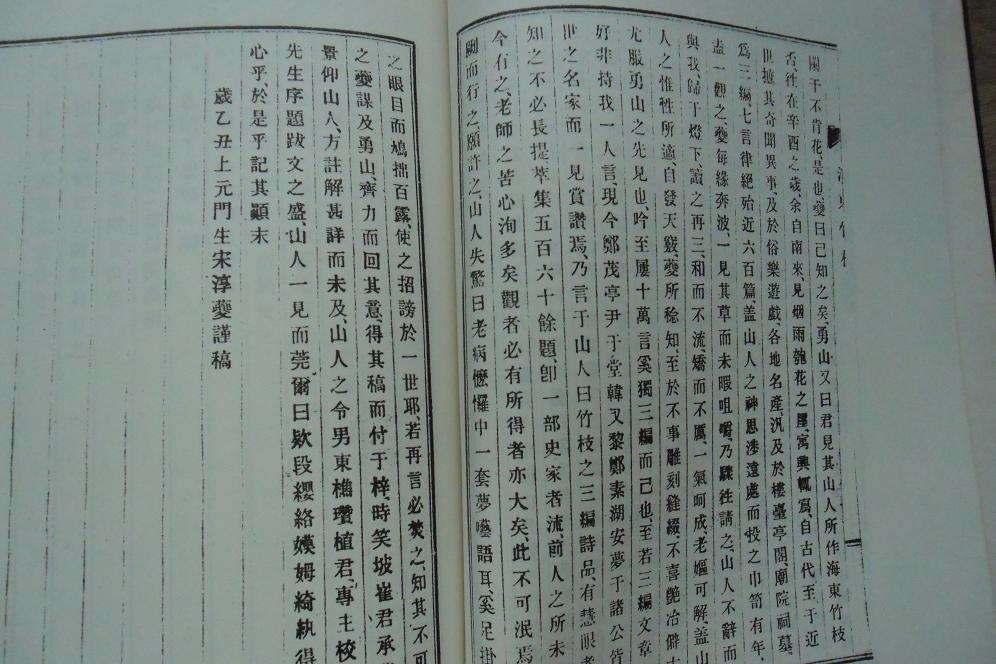 闌干不肯花是也夔曰已知之矣勇山又曰君見其山人所作海東竹枝
否往在辛酉之歲余自南來見烟雨匏花之屋寓興輒寫自古代至于近
世摭其奇聞異事及於俗樂遊戲各地名產汎及於樓臺亭閣廟院祠墓
爲三編七言律絕殆近六百篇盖山人之神思涉遠處而投之巾笥有年
盍一觀之夔每緣奔波一見其草而未暇咀嚼乃驟往請之山人不辭而
與我歸于燈下讀之再三和而不流矯而不厲一氣呵成老嫗可解盖山
人之惟性所適自發天竅夔所稔知至於不事雕刻縫綴不喜艶冶僻
尤服勇山之先見也吟至屢十萬言奚獨三編而已也至若三編文章
好非持我一人言現今鄭茂亭尹于堂韓又黎鄭素湖安夢于諸公皆
世之名家而一見賞讚焉乃言于山人曰竹枝之三編詩品有慧眼者
知之不必長提萃集五百六十餘題卽一部史家者流前人之所未
今有之老師之苦心洵多矣觀者必有所得者亦大矣此不可泯焉
劂而行之願許之山人失驚曰老病懨懼中一套夢囈語耳奚足掛
之眼目而鳩拙百露使之招謗於一世耶若再言必焚之知其不可
之夔謀及勇山齊力而回其意得其稿而付于梓時笑坡崔君承
景仰山人方註解甚詳而未及山人之令男東樵瓚植君專主校
先生序題跋文之盛山人一見而莞爾曰欵段纓絡嫫姆綺紈得
心乎於是乎記其顚末
歲乙丑上元門生宋淳夔謹稿